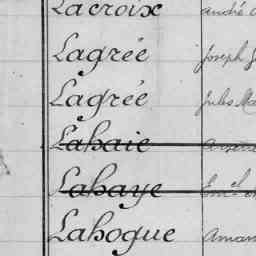 Lacroix André
Lagrée Joseph
Lagrée Jules
Lahaie
Lahaye
Lahogue